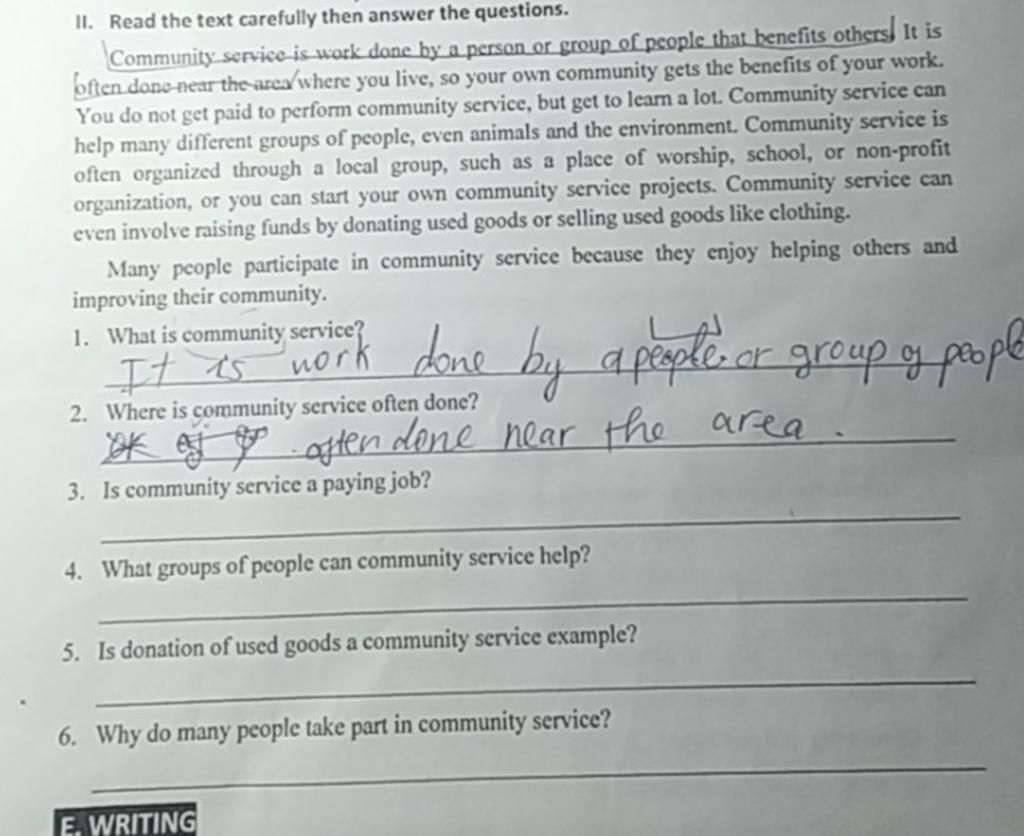 II. Read the text carefully then answer the questions.
Community service is work done by a person or group of people that benefits others. It is
often done near the area where you live, so your own community gets the benefits of your work.
You do not get paid to perform community service, but get to learn a lot. Community service can
help many different groups of people, even animals and the environment. Community service is
often organized through a local group, such as a place of worship, school, or non-profit
organization, or you can start your own community service projects. Community service can
even involve raising funds by donating used goods or selling used goods like clothing.
Many people participate in community service because they enjoy helping others and
improving their community.
1. What is community service?
It is work done by a people or group of people
2. Where is community service often done?
often done near the area.
3. Is community service a paying job?
4. What groups of people can community service help?
5. Is donation of used goods a community service example?
6. Why do many people take part in community service?
E. WRITING